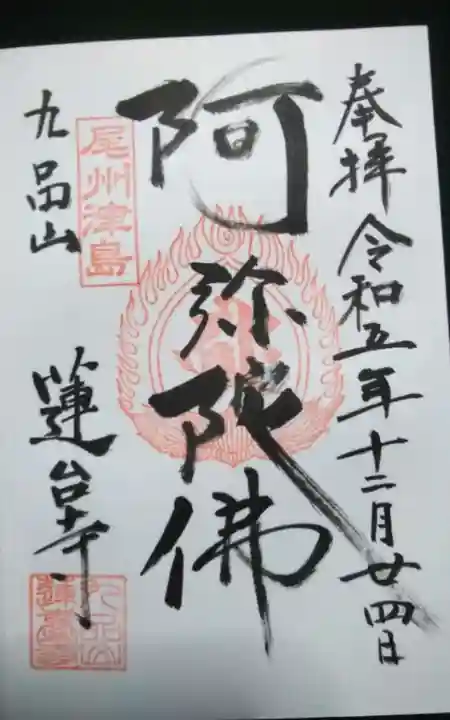 奉拝 令和五年十二月廿四日
阿弥陀佛
尾州津島
九品山
蓮台寺